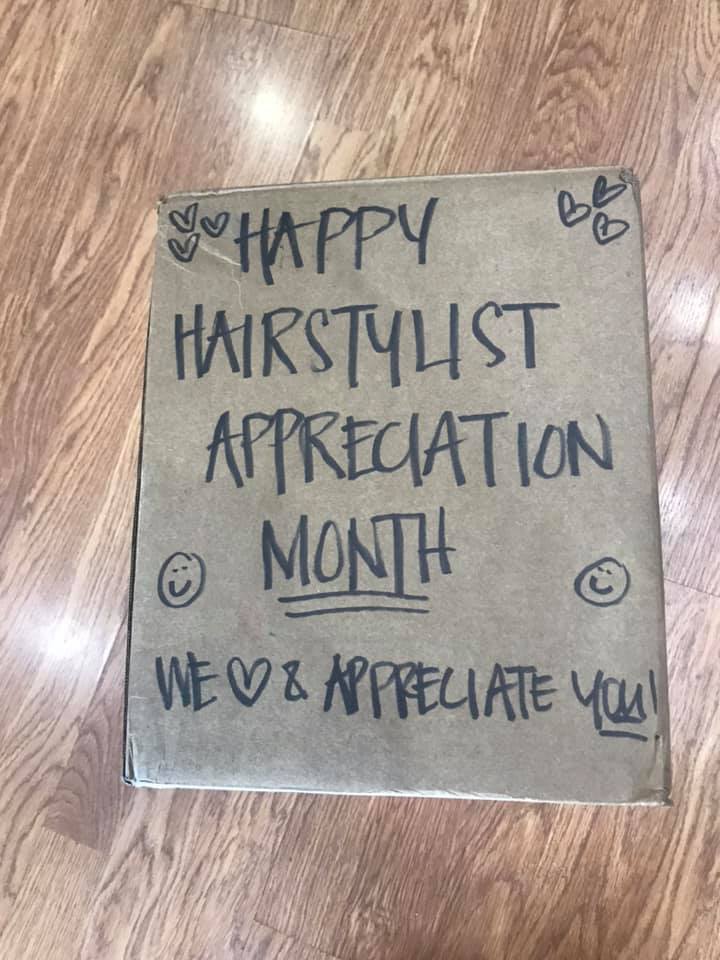 HAPPY
HAIRSTYLIST
APPRECIATION
MONTH
WE ♡ & APPRECIATE YOU!